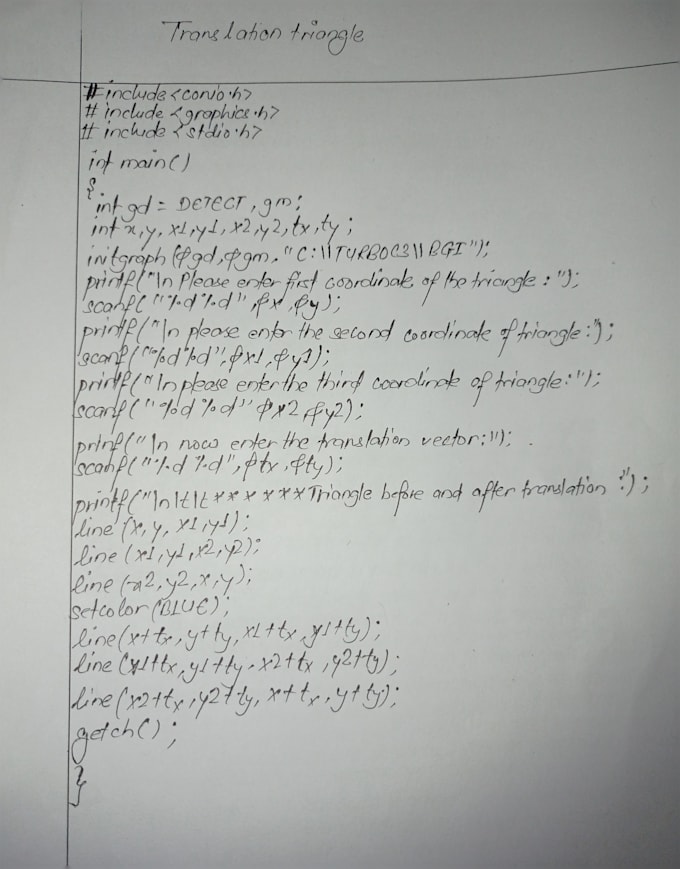 Translation triangle
#include <conio.h>
# include <graphics.h>
# include <stdio.h>
int main()
{
int gd = DETECT, gm;
int x, y, x1, y1, x2, y2, tx, ty;
initgraph (&gd, &gm, "C:\\TURBOC3\\BGI");
printf("\n Please enter first coordinate of the triangle : ");
scanf( "%d %d", &x, &y);
printf("\n please enter the second coordinate of triangle:");
scanf("%d %d", &x1, &y1);
printf("\n please enter the third coordinate of triangle:");
scanf("%d %d" &x2, &y2);
prinf("\n now enter the translation vector:");
scanf("%d %d", &tx, &ty);
printf("\n\t\t******Triangle before and after translation :");
line (x, y, x1, y1);
line (x1, y1, x2, y2);
line (x2, y2, x, y);
setcolor(BLUE);
line(x+tx, y+ty, x1+tx, y1+ty);
line (x1+tx, y1+ty, x2+tx, y2+ty);
line (x2+tx, y2+ty, x+tx, y+ty);
getch();
}